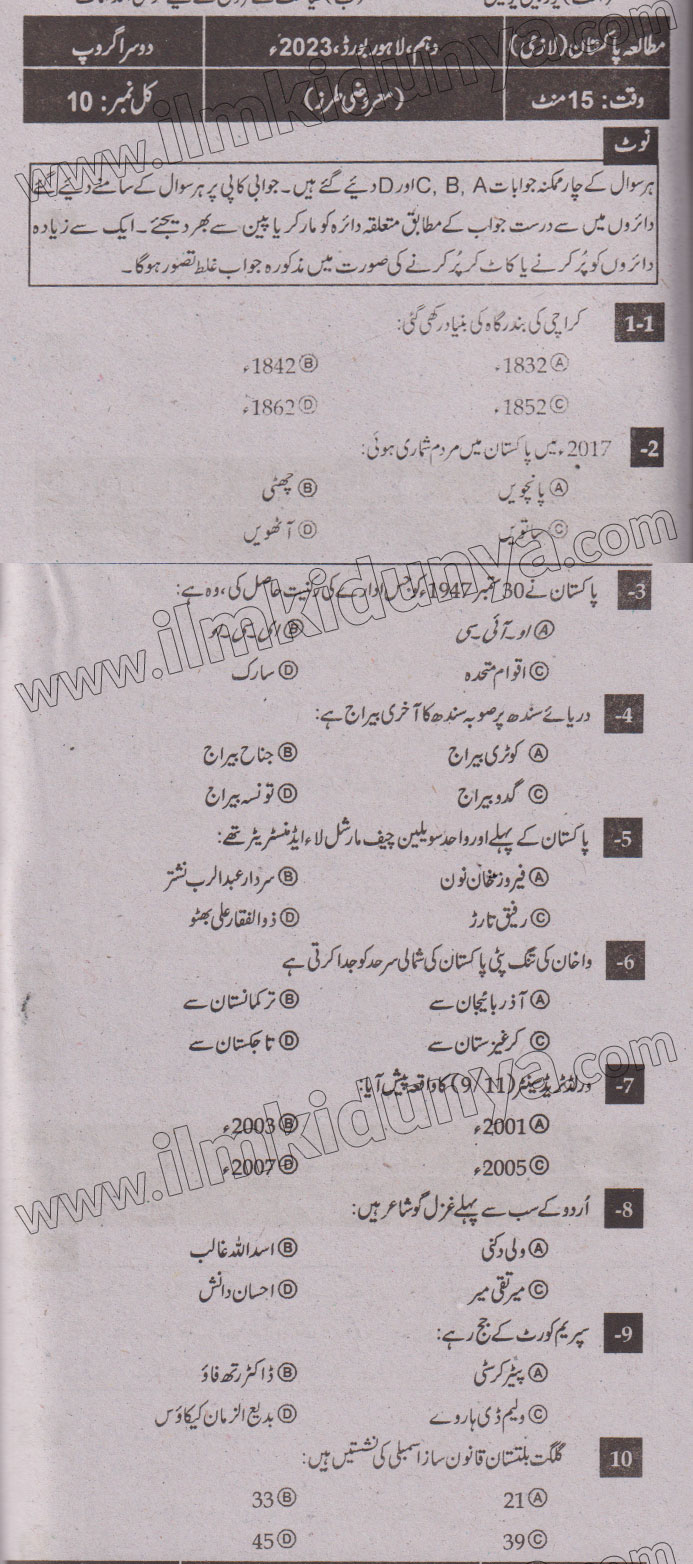 مطالعہ پاکستان (لازمی) دہم، لاہور بورڈ، 2023ء دوسرا گروپ
وقت: 15 منٹ (معروضی طرز) کل نمبر: 10
نوٹ
ہر سوال کے چار ممکنہ جوابات C, B, A اور D دیئے گئے ہیں۔ جوابی کاپی پر ہر سوال کے سامنے دیئے گئے
دائروں میں سے درست جواب کے مطابق متعلقہ دائرہ کو مارکر یا پین سے بھر دیجئے۔ ایک سے زیادہ
دائروں کو پُر کرنے یا کاٹ کر پُر کرنے کی صورت میں مذکورہ جواب غلط تصور ہوگا۔
1-1 کراچی کی بندرگاہ کی بنیاد رکھی گئی:
Ⓐ 1832ء Ⓑ 1842ء
Ⓒ 1852ء Ⓓ 1862ء
-2 2017ء میں پاکستان میں مردم شماری ہوئی:
Ⓐ پانچویں Ⓑ چھٹی
Ⓒ ساتویں Ⓓ آٹھویں
-3 پاکستان نے 30 ستمبر 1947ء کو جس ادارے کی رکنیت حاصل کی، وہ ہے:
Ⓐ او۔آئی۔سی Ⓑ ای۔سی۔او
Ⓒ اقوام متحدہ Ⓓ سارک
-4 دریائے سندھ پر صوبہ سندھ کا آخری بیراج ہے:
Ⓐ کوٹری بیراج Ⓑ جناح بیراج
Ⓒ گدو بیراج Ⓓ تونسہ بیراج
-5 پاکستان کے پہلے اور واحد سویلین چیف مارشل لاء ایڈمنسٹریٹر تھے:
Ⓐ فیروز خان نون Ⓑ سردار عبدالرب نشتر
Ⓒ رفیق تارڑ Ⓓ ذوالفقار علی بھٹو
-6 واخان کی تنگ پٹی پاکستان کی شمالی سرحد کو جدا کرتی ہے
Ⓐ آذربائیجان سے Ⓑ ترکمانستان سے
Ⓒ کرغیزستان سے Ⓓ تاجکستان سے
-7 ورلڈ ٹریڈ سینٹر (9/11) کا واقعہ پیش آیا:
Ⓐ 2001ء Ⓑ 2003ء
Ⓒ 2005ء Ⓓ 2007ء
-8 اُردو کے سب سے پہلے غزل گو شاعر ہیں:
Ⓐ ولی دکنی Ⓑ اسد اللہ غالب
Ⓒ میر تقی میر Ⓓ احسان دانش
-9 سپریم کورٹ کے جج رہے:
Ⓐ پیٹر کرسٹی Ⓑ ڈاکٹر رتھ فاؤ
Ⓒ ولیم ڈی ہاروے Ⓓ بدیع الزمان کیکاؤس
10 گلگت بلتستان قانون ساز اسمبلی کی نشستیں ہیں:
Ⓐ 21 Ⓑ 33
Ⓒ 39 Ⓓ 45
www.ilmkidunya.com
www.ilmkidunya.com
www.ilmkidunya.com